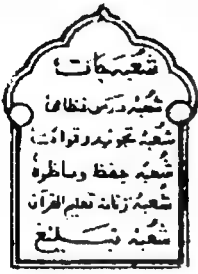 شعبہ جات
شعبہ درس نظامی
شعبہ تجوید و قرأت
شعبہ حفظ و ناظرہ
شعبہ زنانہ تعلیم القرآن
شعبہ تبلیغ